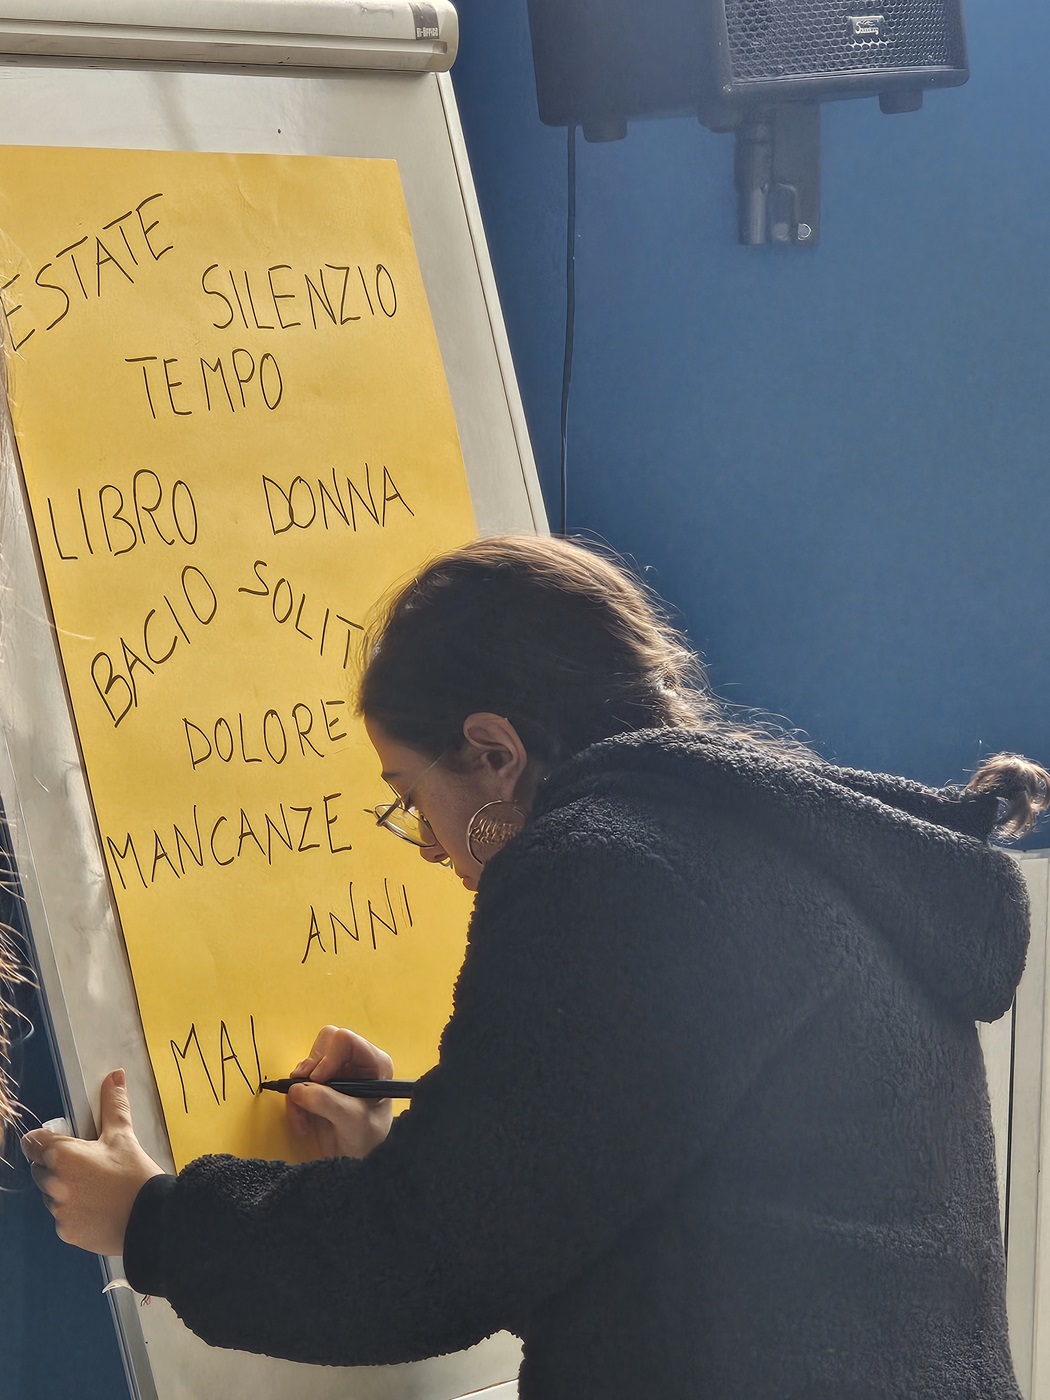 ESTATE
SILENZIO
TEMPO
LIBRO DONNA
BACIO SOLIT
DOLORE
MANCANZE
ANNI
MAL